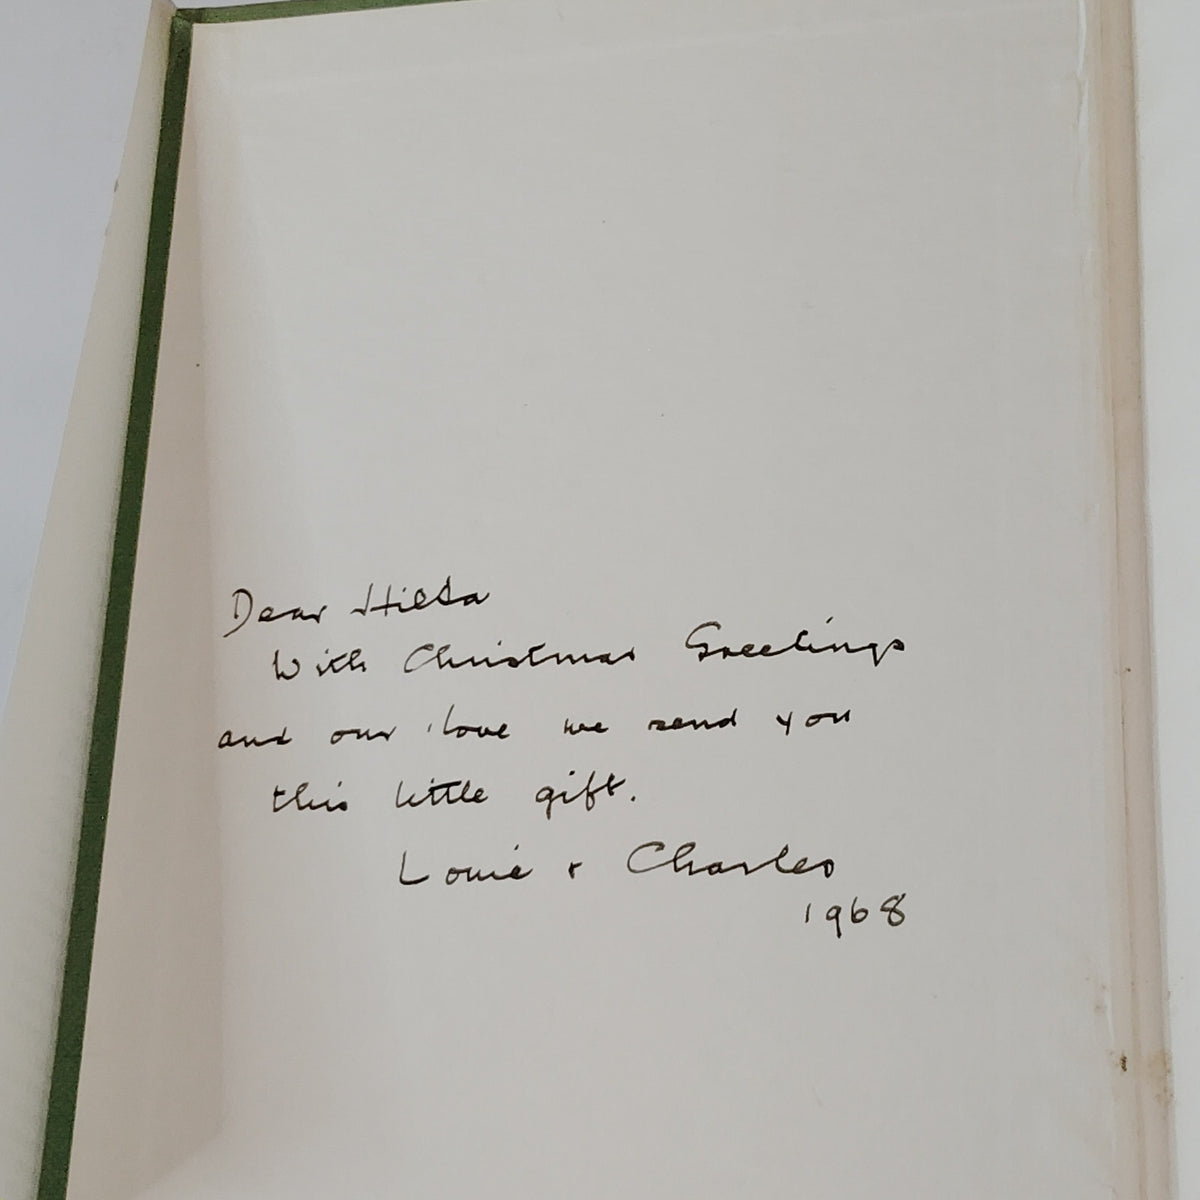 Dear Hilda
With Christmas Greetings
and our love we send you
this little gift.
Louie + Charles
1968